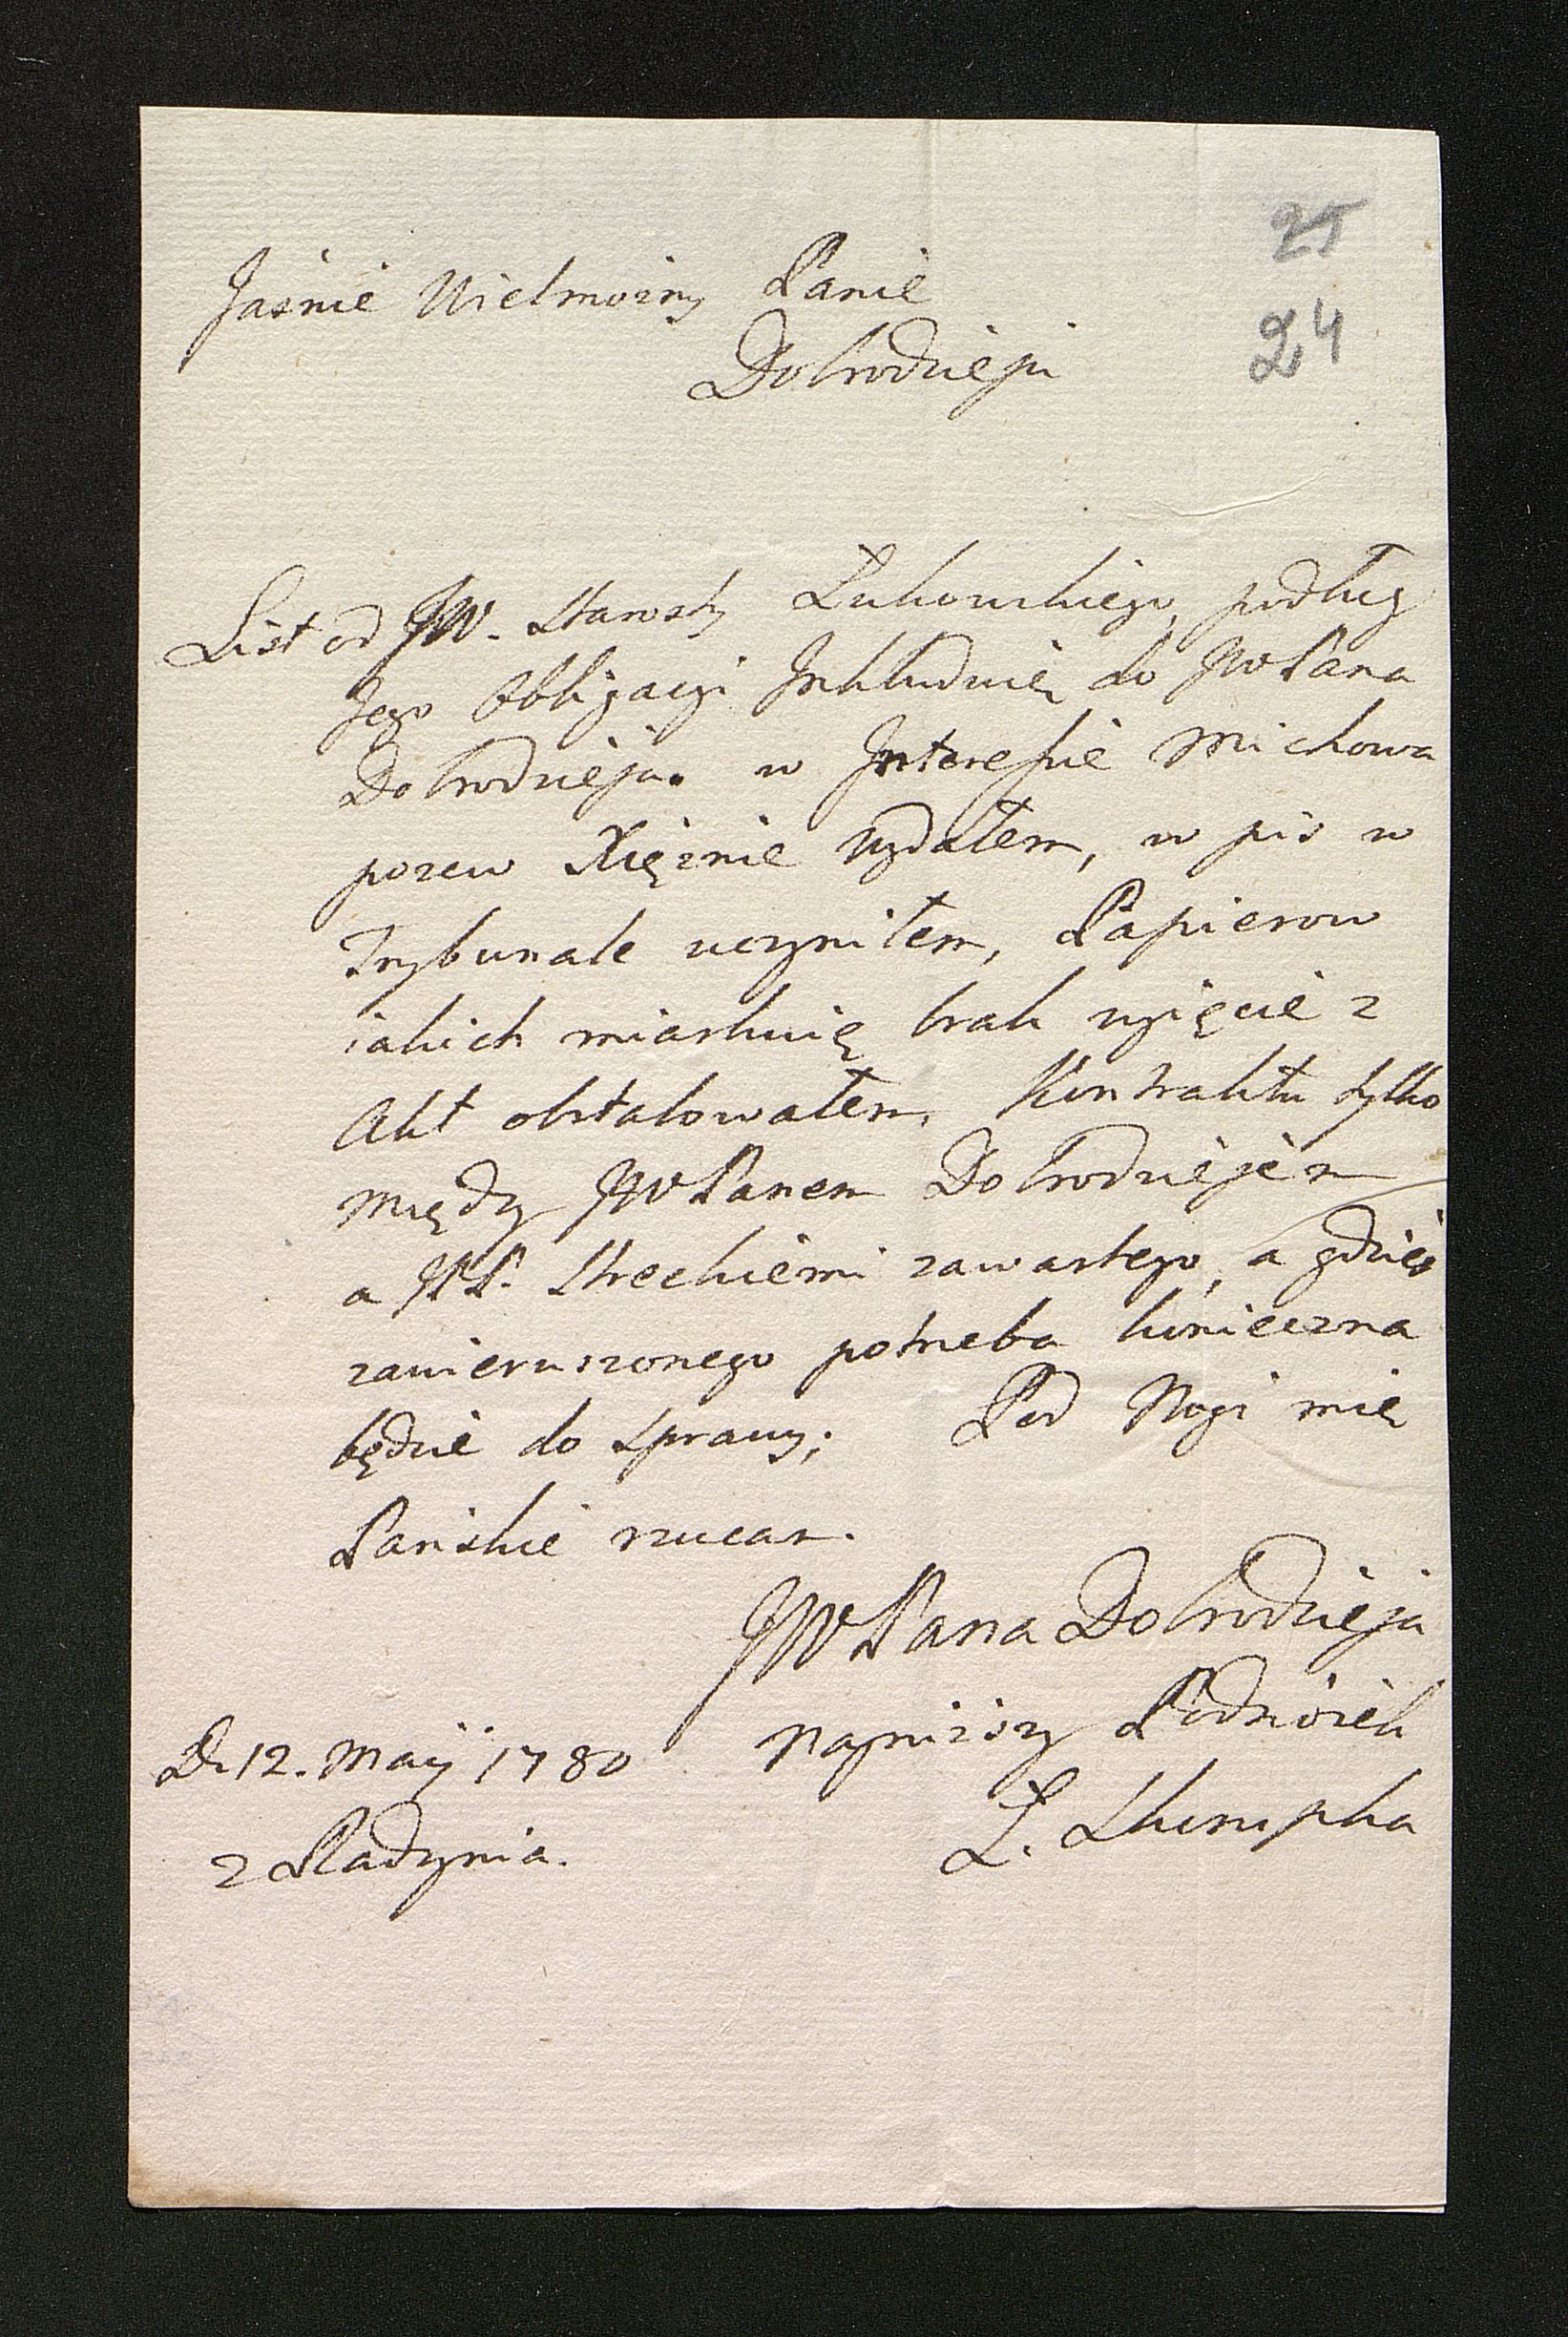 25
24
Jaśnie Wielmożny Panie
Dobrodzieju
List od JW. Starosty Łukowskiego, podług
Jego Obligacyi Inkluduię do JWPana
Dobrodzieja. w Interessie Michowa
pozew Xiężnie wydałem, w pis w
Trybunale uczyniłem, Papierow
iakich miarkuię brak wyięcie z
Akt obstalowałem, Kontraktu tylko
między JWPanem Dobrodziejem
a PP. zawartego, a gdzieś
zawieruszonego potrzeba konieczna
będzie do Sprawy; Pod Nogi mię
Pańskie rzucam.
JWPana Dobrodzieja
Najniższy Podnóżek
D. 12. Maij 1780
Ł. Skrupka
z Radzynia.